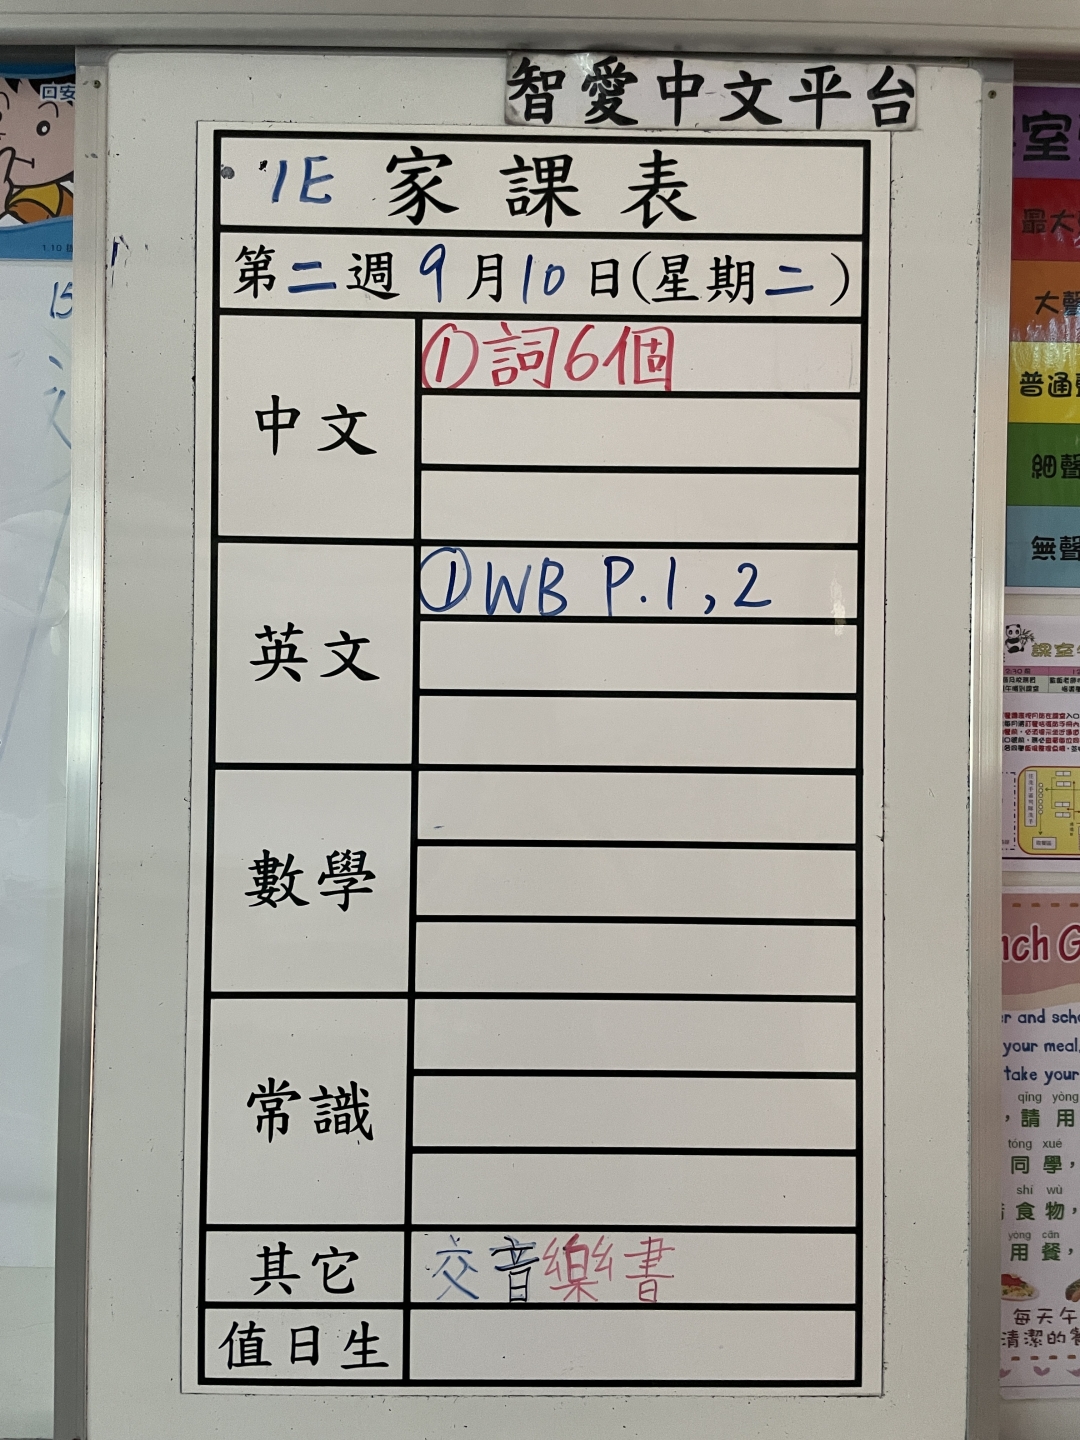 智愛中文平台
1E 家課表
第二週9月10日(星期二)
中文
①詞6個
英文
①WB P.1,2
數學
常識
其它
交音樂書
值日生
回安
1.10
15
室
最大
大聲
普通
細聲
無聲
課室
nch G
er and scho
your meal,
take your
qǐng yòng
，請用
tóng xué
同學，
shí wù
食物，
yòng cān
用餐，
每天午
清潔的餐